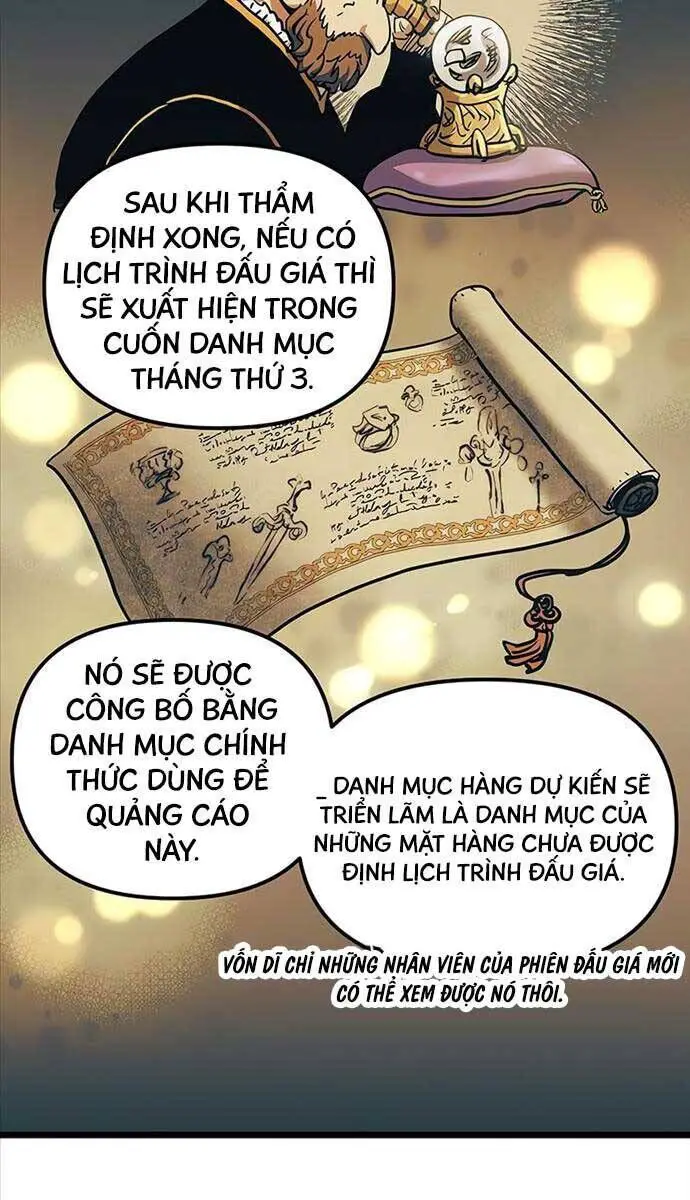 SAU KHI THẨM
ĐỊNH XONG, NẾU CÓ
LỊCH TRÌNH ĐẤU GIÁ THÌ
SẼ XUẤT HIỆN TRONG
CUỐN DANH MỤC
THÁNG THỨ 3.
NÓ SẼ ĐƯỢC
CÔNG BỐ BẰNG
DANH MỤC CHÍNH
THỨC DÙNG ĐỂ
QUẢNG CÁO
NÀY.
_ DANH MỤC HÀNG DỰ KIẾN SẼ
TRIỂN LÃM LÀ DANH MỤC CỦA
NHỮNG MẶT HÀNG CHƯA ĐƯỢC
ĐỊNH LỊCH TRÌNH ĐẤU GIÁ.
VỐN DĨ CHỈ NHỮNG NHÂN VIÊN CỦA PHIÊN ĐẤU GIÁ MỚI
CÓ THỂ XEM ĐƯỢC NÓ THÔI.